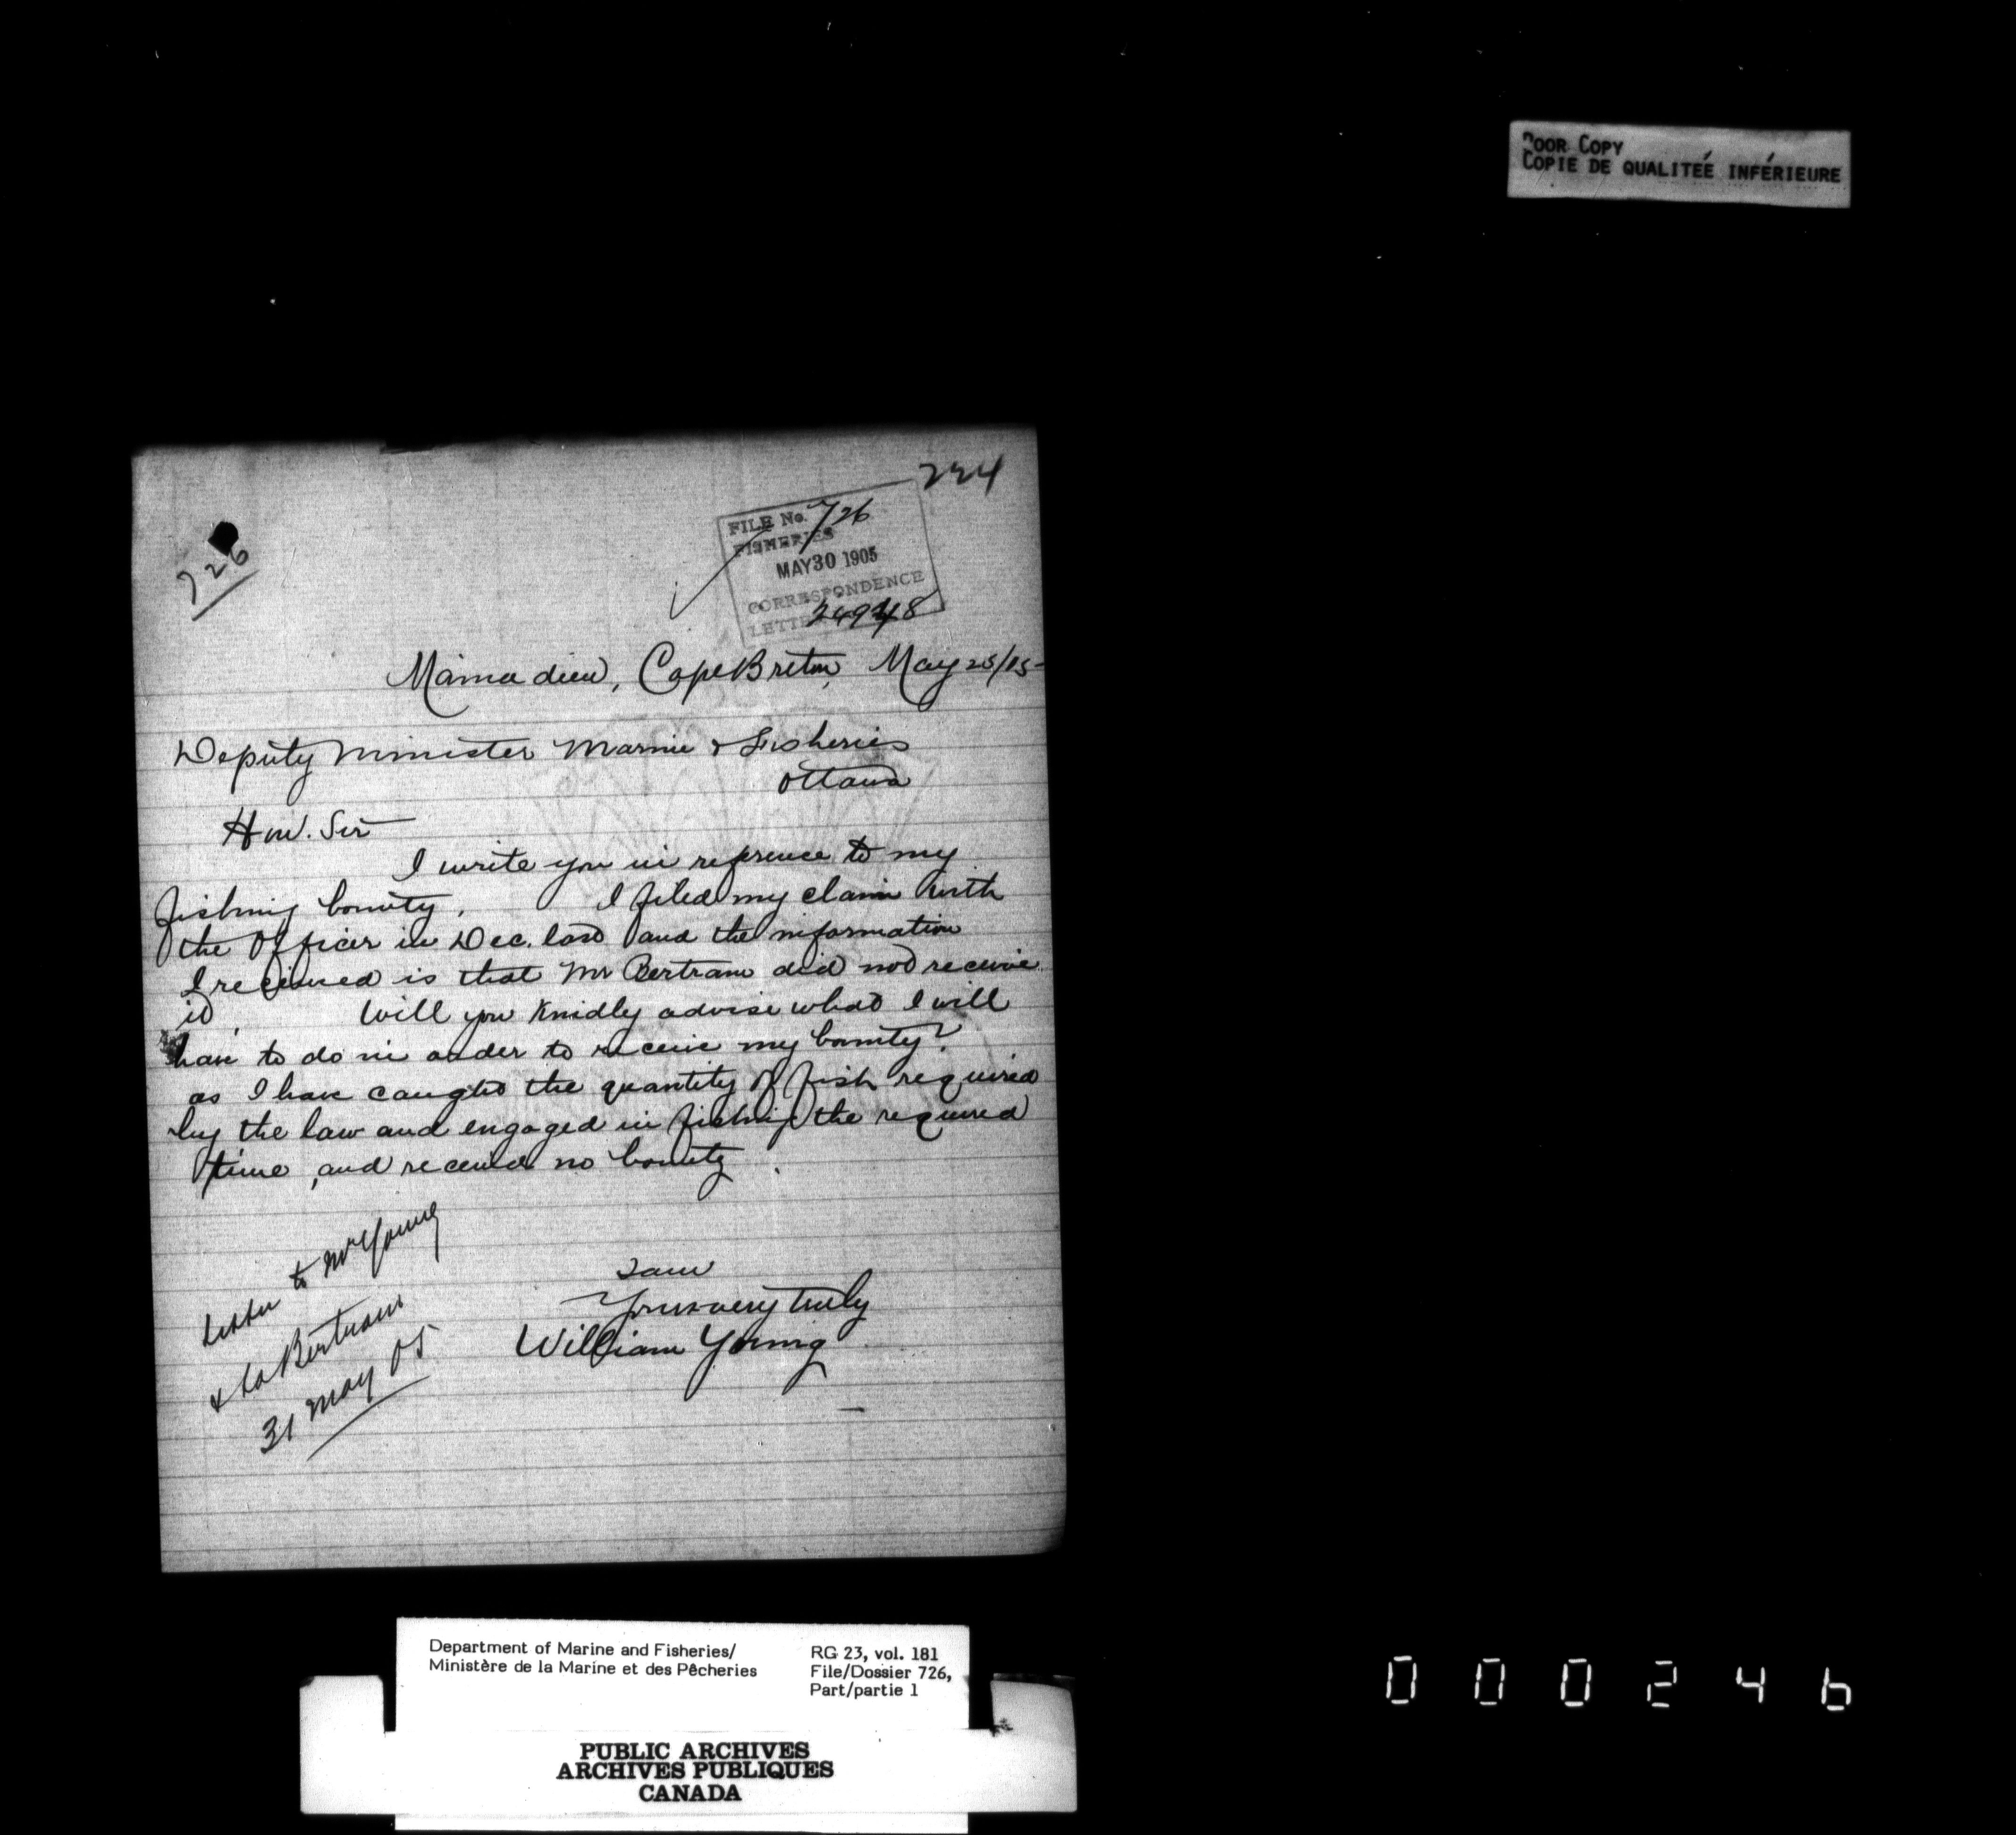 POOR COPY
COPIE DE QUALITÉÉ INFÉRIEURE
224
FILE No. 726
FISHERIES
MAY 30 1905
CORRESPONDENCE
LETTER
726
Mainadieu, Cape Breton, May 25/05
Deputy Minister Marine & Fisheries
Ottawa
Hon. Sir
I write you in reference to my
fishing bounty. I filed my claim with
the Officer in Dec. last and the information
I received is that Mr Bertram did not receive
it. Will you kindly advise what I will
have to do in order to receive my bounty?
as I have caught the quantity of fish required
by the law and engaged in fishing the required
time, and received no bounty.
I am
Yours very truly
William Young
Letter to Mr Young
& to Bertram
31 May 05
Department of Marine and Fisheries/
Ministère de la Marine et des Pêcheries
RG 23, vol. 181
File/Dossier 726,
Part/partie 1
PUBLIC ARCHIVES
ARCHIVES PUBLIQUES
CANADA
000246